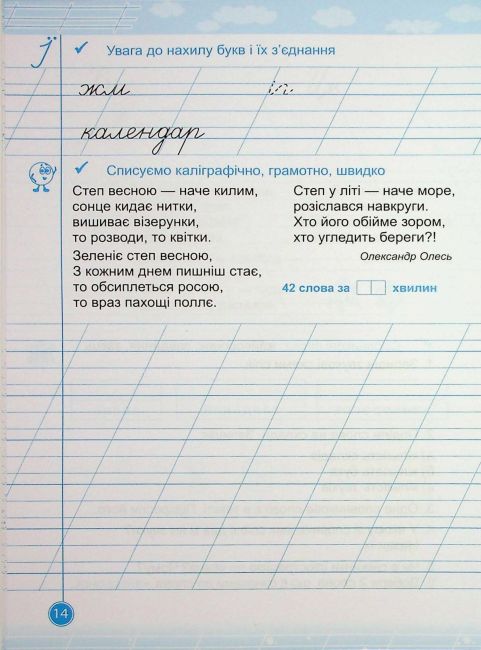 Ї
Увага до нахилу букв і їх з’єднання
жм
календар
Списуємо каліграфічно, грамотно, швидко
Степ весною — наче килим,
сонце кидає нитки,
вишиває візерунки,
то розводи, то квітки.
Зеленіє степ весною,
З кожним днем пишніш стає,
то обсиплеться росою,
то враз пахощі поллє.
Степ у літі — наче море,
розіслався навкруги.
Хто його обійме зором,
хто угледить береги?!
Олександр Олесь
42 слова за хвилин
14